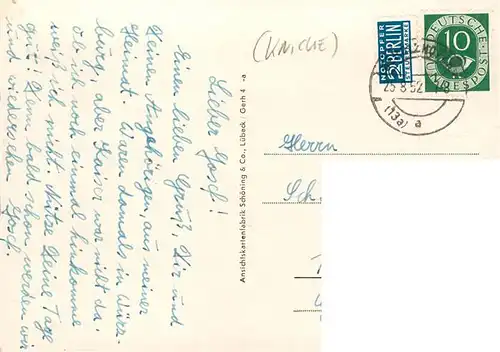 Lieber Josef!
Einen lieben Gruß, Dir und
Deinen Angehörigen, aus meiner
Heimat. Waren damals in Würz-
burg, aber Kaiser war nicht da.
ob ich noch einmal hinkomme
weiß ich nicht. Nütze Deine Tage
gut! Denn bald schon werden wir
uns wiedersehen. Josef.
Ansichtskartenfabrik Schöning & Co., Lübeck Gerh 4 -a
(KNICKE)
NOTOPFER
2 BERLIN
STEUERMARKE
DEUTSCHE
10
BUNDESPOST
25 8 52
(13a)
a
Herrn
Sch